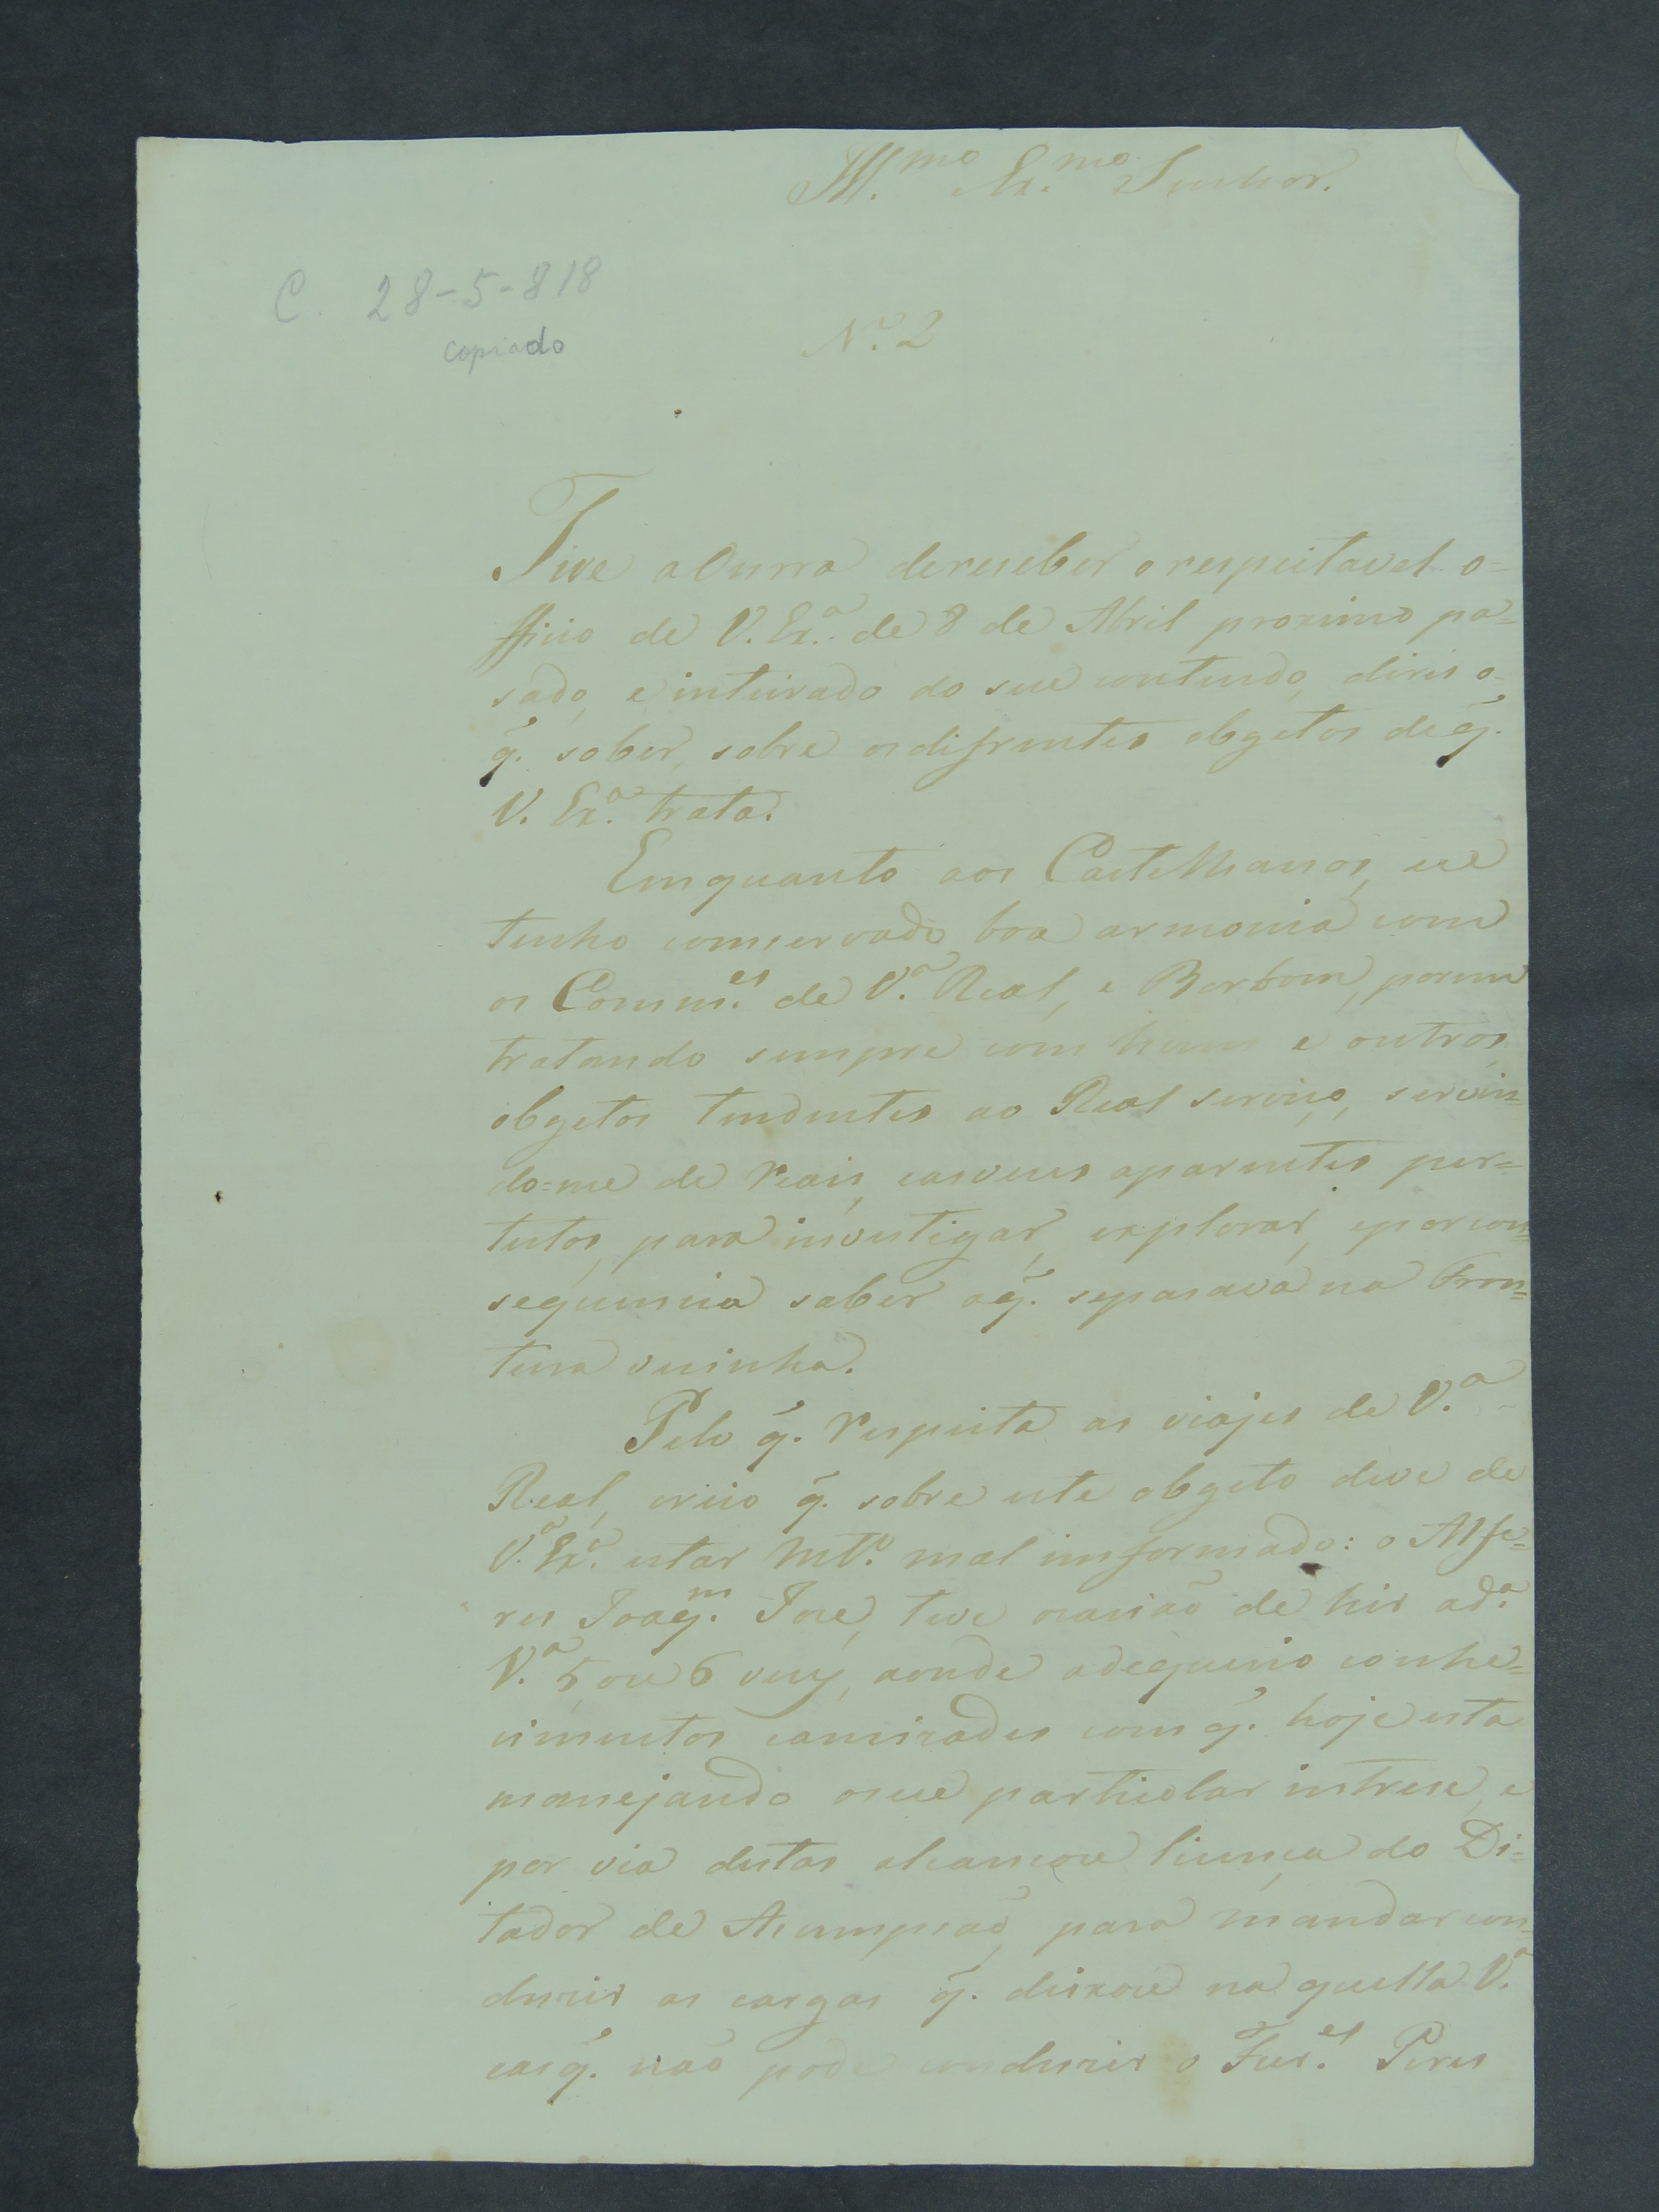 Ill.mo Ex.mo Senhor.
C. 28-5-818
copiado
N.o 2
Tive aOnrra dereseber orespeitavel o=
fficio de V. Ex.a de 8 de Abril proximo pa=
sado, e inteirado do seu conteudo, direi o-
q̃. sober, sobre osdifrentes obgetos deq̃.
V. Ex.a trata.
Emquanto aos Castelhanos, eu
tenho comservado boa armonia com
os Comm.es de V.a Real, e Borbom, porem
tratando sempre com huns e outros
obgetos tendentes ao Real serviço, servin=
do=me de reais, easveses aparentes per=
testos, para investigar, explorar, eporcon=
sequencia saber oq̃. sepasava na Fron=
teira vesinha.
Pelo q̃. respeita as viajes de V.a
Real, creio q̃. sobre este obgeto deve de
V.a Ex.a estar Mt.o mal imformado: o Alfe=
res Joaq.m José, teve ocasiaõ de hir ad.a
V.a 5, ou 6 vezes, aonde adequerio conhe=
cimentos eamizades com q̃. hoje esta
manejando oseu particular intrese, e
por via destas alcansou licença do Di=
tador de Asumpsaõ, para mandar con=
duzir as cargas q̃. deixou na quella V.a
easq̃. naõ pode conduzir o Fur.el Peres